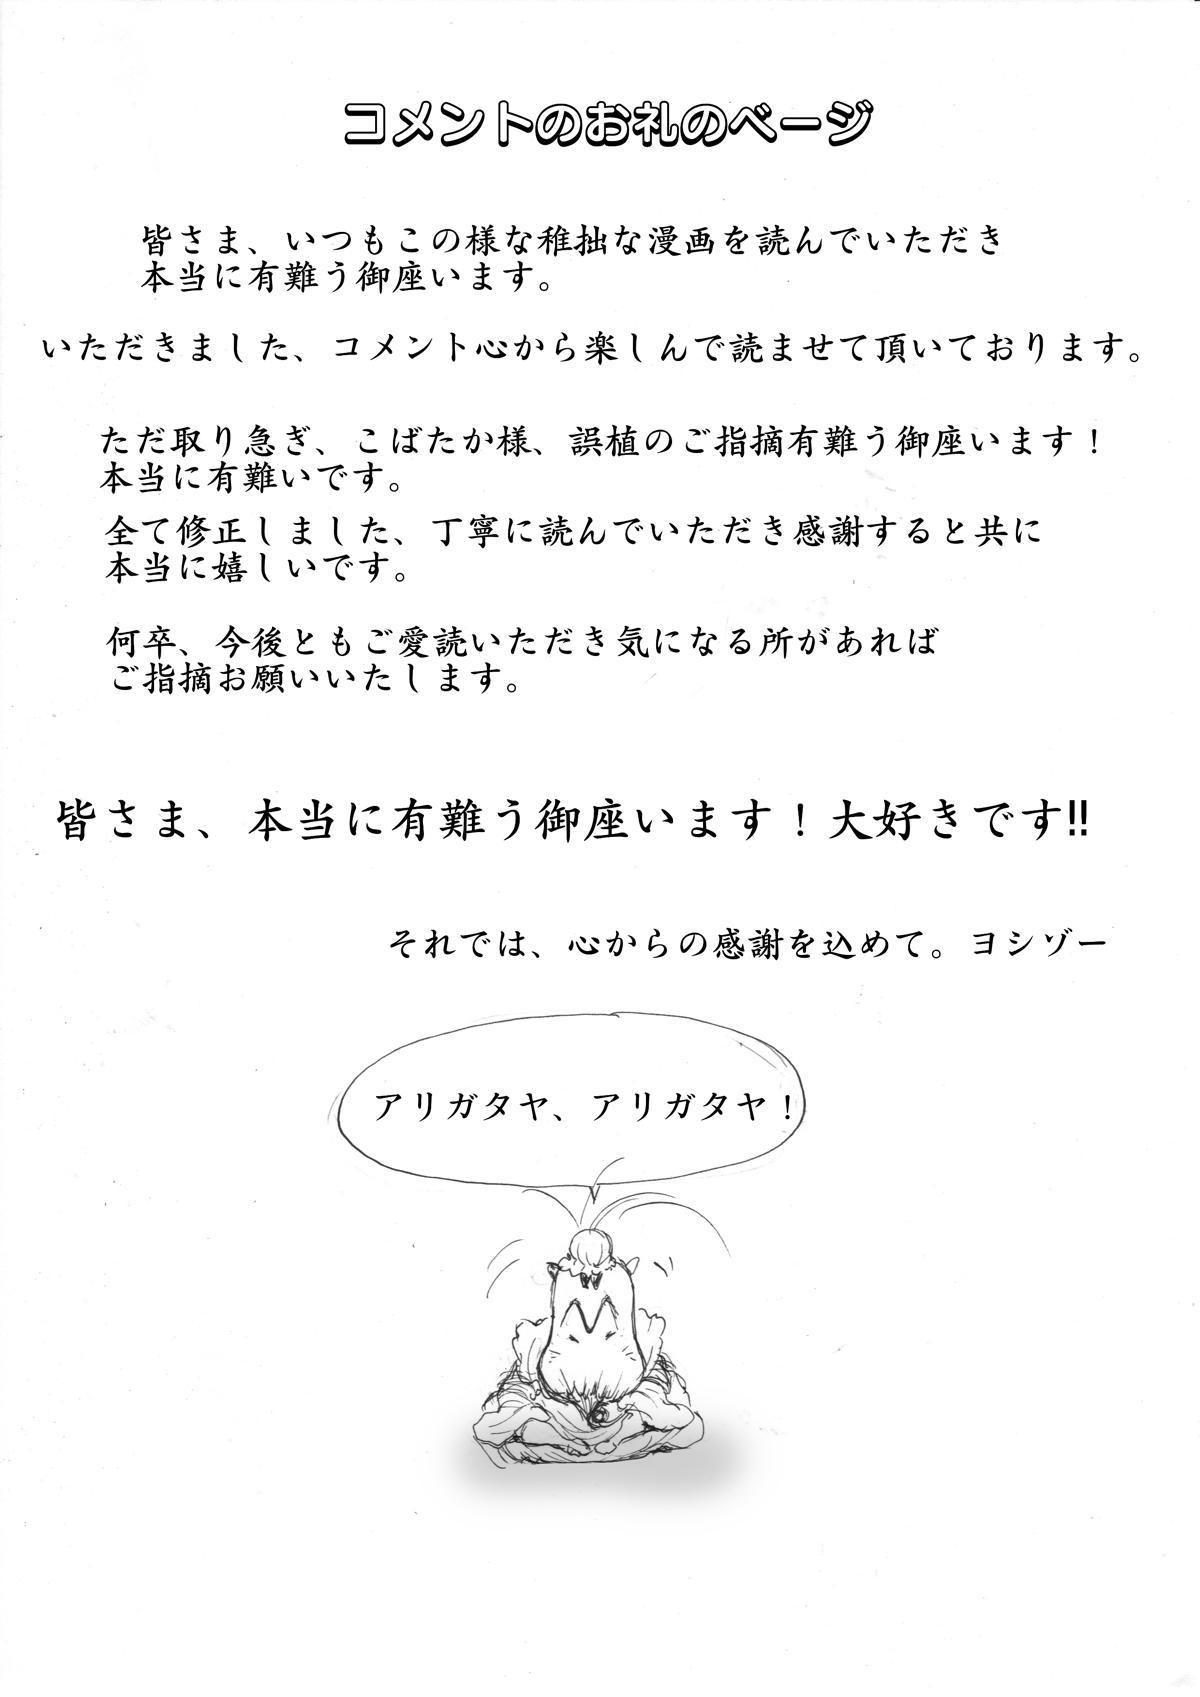 コメントのお礼のページ
皆さま、いつもこの様な稚拙な漫画を読んでいただき
本当に有難う御座います。
いただきました、コメント心から楽しんで読ませて頂いております。
ただ取り急ぎ、こばたか様、誤植のご指摘有難う御座います！
本当に有難いです。
全て修正しました、丁寧に読んでいただき感謝すると共に
本当に嬉しいです。
何卒、今後ともご愛読いただき気になる所があれば
ご指摘お願いいたします。
皆さま、本当に有難う御座います！大好きです!!
それでは、心からの感謝を込めて。ヨシゾー
アリガタヤ、アリガタヤ！